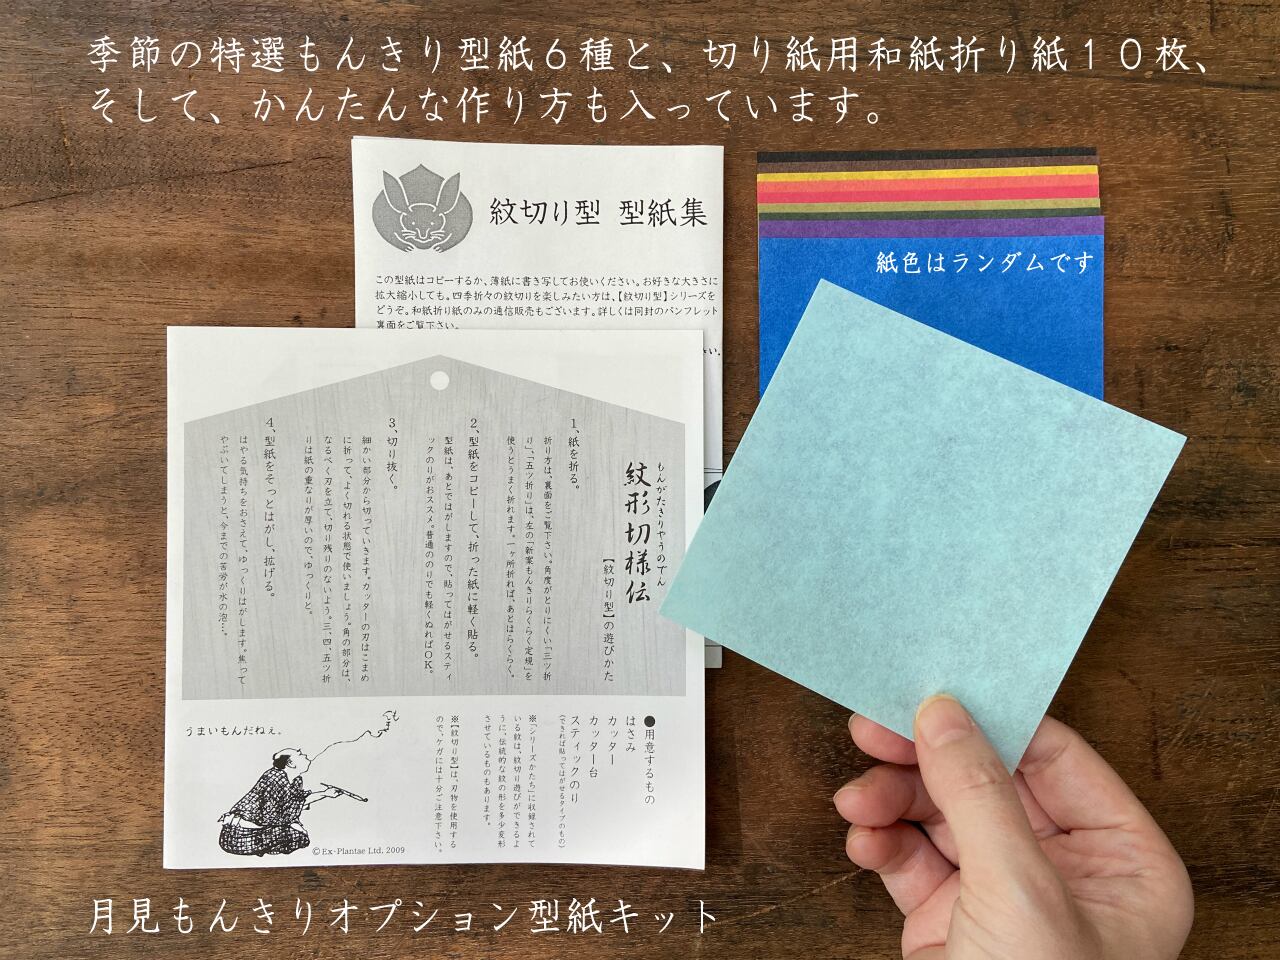 季節の特選もんきり型紙６種と、切り紙用和紙折り紙１０枚、
そして、かんたんな作り方も入っています。
紋切り型 型紙集
この型紙はコピーするか、薄紙に書き写してお使いください。お好きな大きさに
拡大縮小しても。四季折々の紋切りを楽しみたい方は、【紋切り型】シリーズを
どうぞ。和紙折り紙のみの通信販売もございます。詳しくは同封のパンフレット
裏面をご覧下さい。
さい。
紙色はランダムです
もんがたきりやうのでん
紋形切様伝
【紋切り型】の遊びかた
1、紙を折る。
折り方は、裏面をご覧下さい。角度がとりにくい「三ツ折
り」、「五ツ折り」は、左の「新案もんきりらくらく定規」を
使うとうまく折れます。一ヶ所折れば、あとはらくらく。
2、型紙をコピーして、折った紙に軽く貼る。
型紙は、あとではがしますので、貼ってはがせるスティ
ックのりがおススメ。普通ののりでも軽くぬればOK。
3、切り抜く。
細かい部分から切っていきます。カッターの刃はこまめ
に折って、よく切れる状態で使いましょう。角の部分は、
なるべく刃を立て、切り残りのないよう。三、四、五ツ折
りは紙の重なりが厚いので、ゆっくりと。
4、型紙をそっとはがし、拡げる。
はやる気持ちをおさえて、ゆっくりはがします。焦って
やぶいてしまうと、今までの苦労が水の泡…。
●用意するもの
はさみ
カッター
カッター台
スティックのり
（できれば貼ってはがせるタイプのもの）
※「シリーズかたち」に収録されて
いる紋は、紋切り遊びができるよ
うに、伝統的な紋の形を多少変形
させているものもあります。
※【紋切り型】は、刃物を使用する
ので、ケガには十分ご注意下さい。
うまいもんだねぇ。
©Ex-Plantae Ltd. 2009
月見もんきりオプション型紙キット